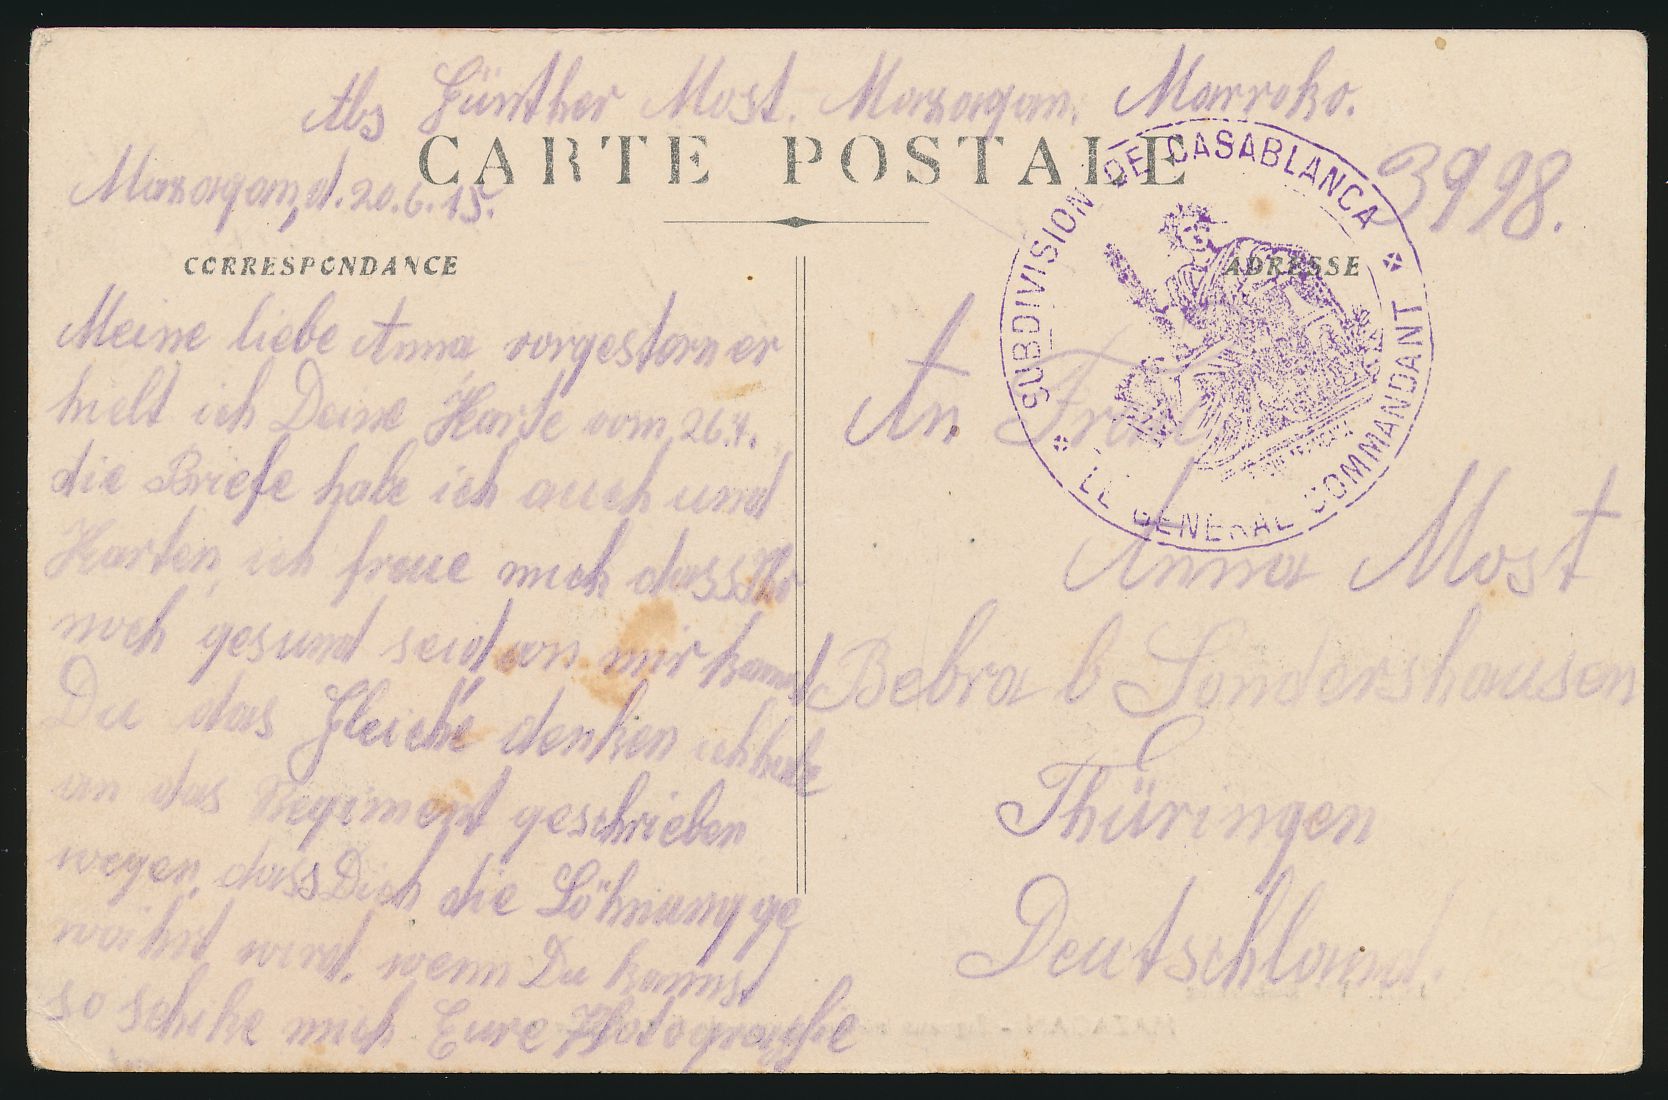 Abs Günther Most. Mazagan. Marroko.
CARTE POSTALE
Mazagan, d. 20.6.15.
3998.
SUBDIVISION DE CASABLANCA
LE GENERAL COMMANDANT
CORRESPONDANCE
Meine liebe Anna, vorgestern er
hielt ich Deine Karte vom 26.4.
die Briefe habe ich auch und
Karten, ich freue mich dass Ihr
noch gesund seid von mir kannst
Du das Gleiche denken ich habe
an das Regiment geschrieben
wegen, dass Dich die Löhnung ge
währt wird, wenn Du kannst
so schike mich Eure Photographie
ADRESSE
An Frau
Anna Most
Bebra b Sondershausen
Thüringen
Deutschland.